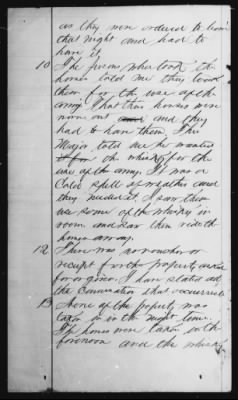 as they were ordered to leave
that night and had to
have it.
10 The person who took the
horses told me they took
them for the use of the
army. That their horses were
worn out and they
had to have them. The
Major told me he wanted
the whisky for the
use of the army. It was a
Cold spell of weather and
they needed it. I saw them
use some of the whisky in
room and saw them ride the
horses away.
12 There was no voucher or
receipt for the property asked
for or given. I have stated all
the conversation that occurred
13 None of the property was
taken in the night time.
The horses were taken in the
forenoon and the whisky